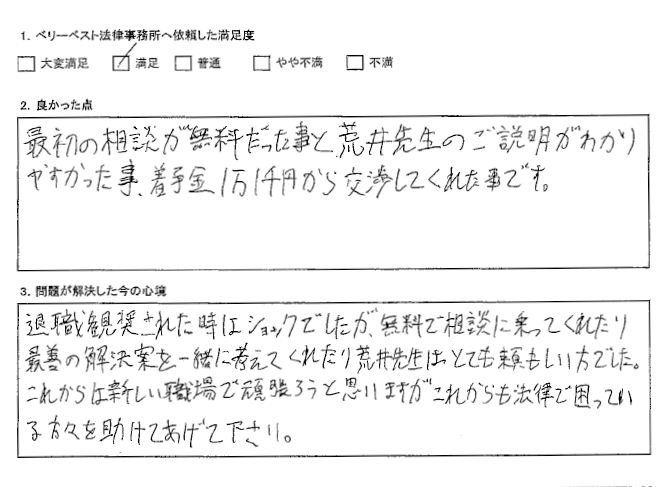 1. ベリーベスト法律事務所へ依頼した満足度
大変満足 満足 普通 やや不満 不満
2. 良かった点
最初の相談が無料だった事と、荒井先生のご説明がわかり
やすかった事、着手金1万1千円から交渉してくれた事です。
3. 問題が解決した今の心境
退職観奨された時はショックでしたが、無料で相談に乗ってくれたり
最善の解決案を一緒に考えてくれたり荒井先生は、とても頼もしい方でした。
これからは新しい職場で頑張ろうと思いますがこれからも法律で困ってい
る方々を助けてあげて下さい。